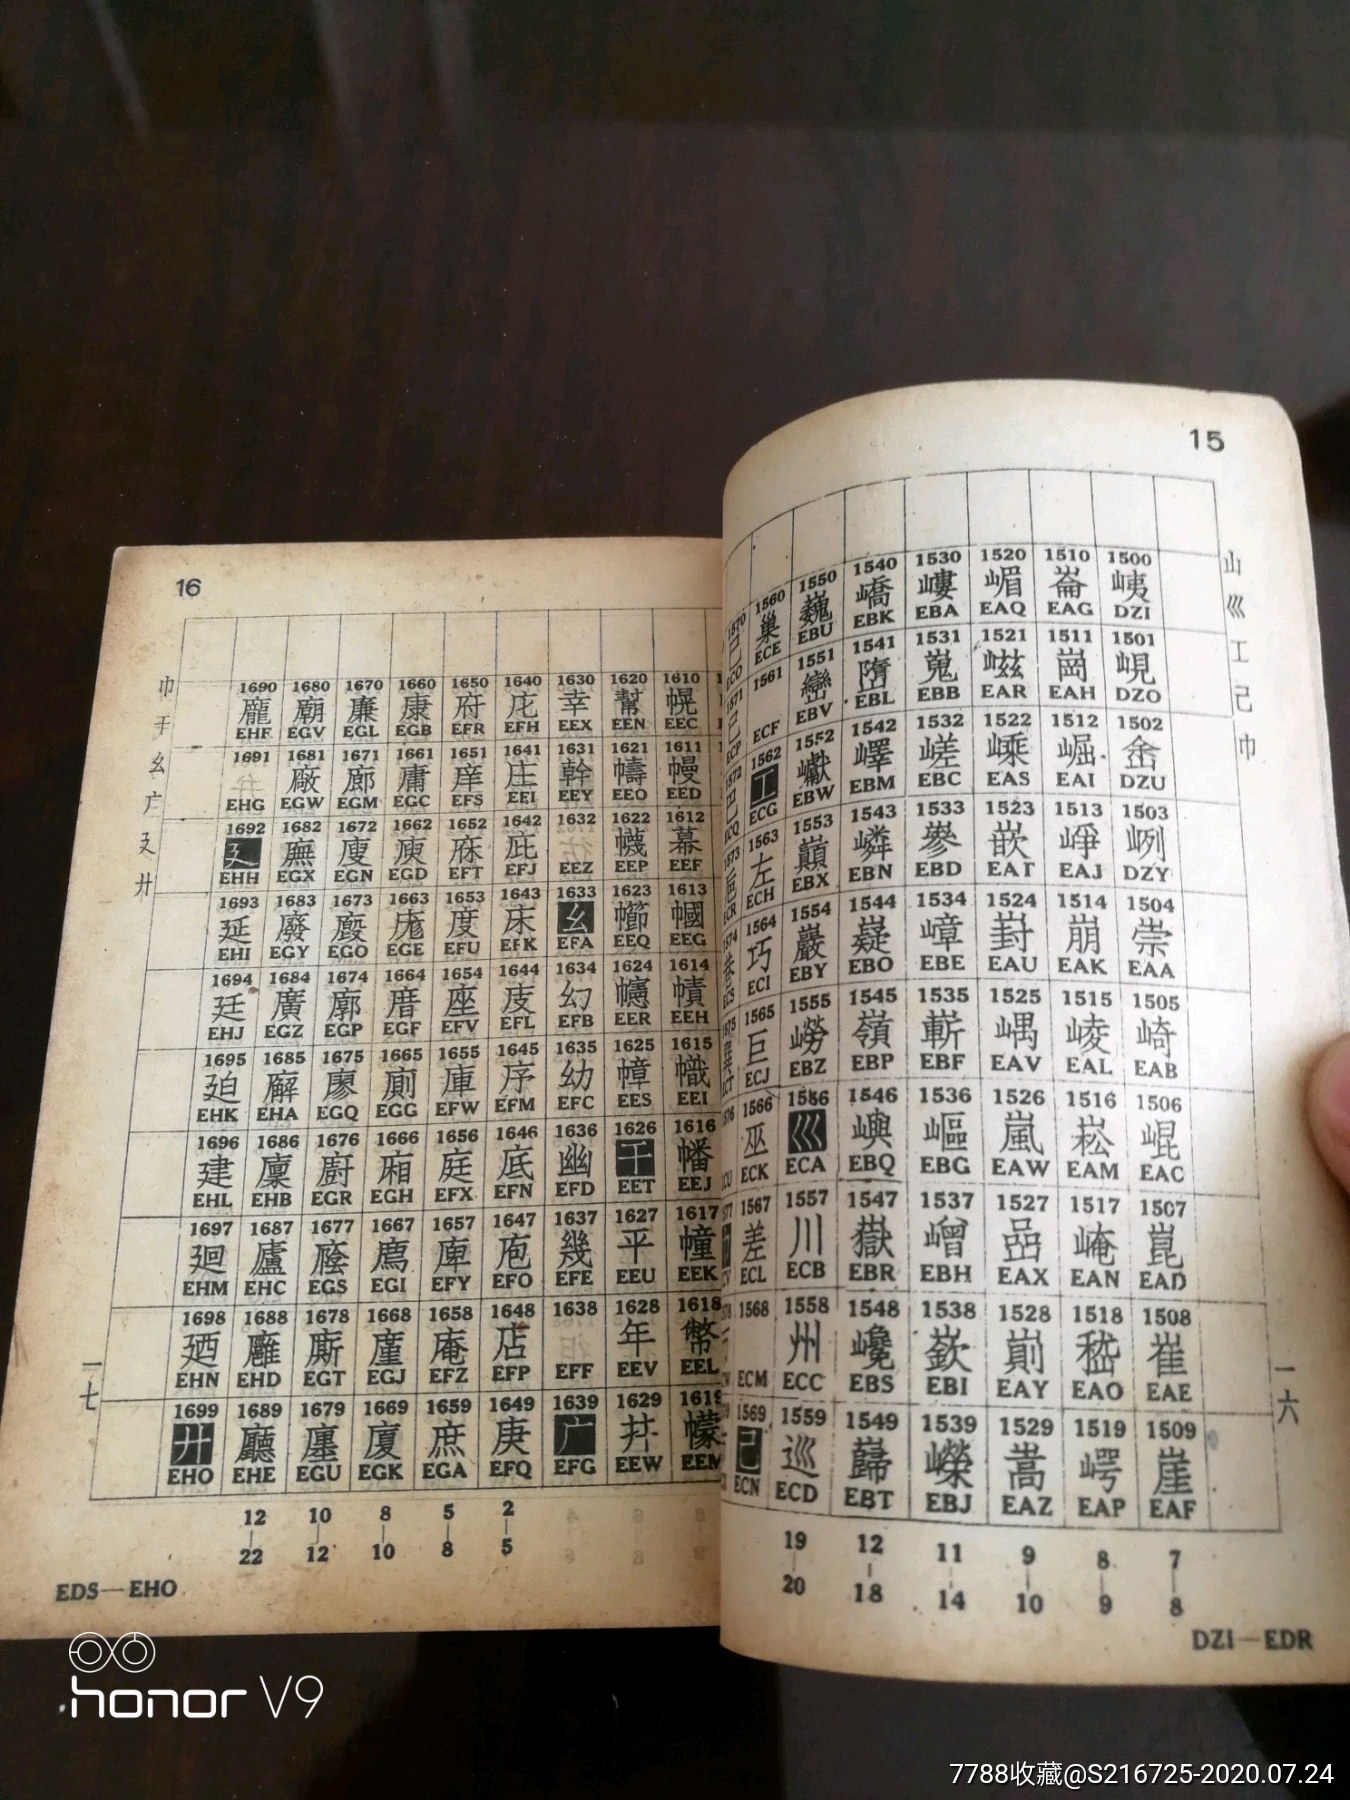 16
巾
干
幺
广
廴
廾
1690 1680 1670 1660 1650 1640 1630 1620 1610
龐 廟 廉 康 府 庀 幸 幫 幌
EHF EGV EGL EGB EFR EFH EEX EEN EEC
1691 1681 1671 1661 1651 1641 1631 1621 1611
廠 廊 庸 庠 庄 幹 幬 幔
EHG EGW EGM EGC EFS EEI EEY EEO EED
1692 1682 1672 1662 1652 1642 1632 1622 1612
廴 廡 廋 庾 庥 庇 幭 幕
EHH EGX EGN EGD EFT EFJ EEZ EEP EEF
1693 1683 1673 1663 1653 1643 1633 1623 1613
延 廢 廄 庬 度 床 幺 幗
EHI EGY EGO EGE EFU EFK EFA EEQ EEG
1694 1684 1674 1664 1654 1644 1634 1624 1614
廷 廣 廓 厝 座 庋 幻 幰 幘
EHJ EGZ EGP EGF EFV EFL EFB EER EEH
1695 1685 1675 1665 1655 1645 1635 1625 1615
廹 廨 廖 廁 庫 序 幼 幛 幟
EHK EHA EGQ EGG EFW EFM EFC EES EEI
1696 1686 1676 1666 1656 1646 1636 1626 1616
建 廩 廚 廂 庭 底 幽 干 幡
EHL EHB EGR EGH EFX EFN EFD EET EEJ
1697 1687 1677 1667 1657 1647 1637 1627 1617
廻 廬 廕 廌 庳 庖 幾 平 幢
EHM EHC EGS EGI EFY EFO EFE EEU EEK
1698 1688 1678 1668 1658 1648 1638 1628 1618
廼 廱 廝 廑 庵 店 年 幣
EHN EHD EGT EGJ EFZ EFP EFF EEV EEL
1699 1689 1679 1669 1659 1649 1639 1629 1619
廾 廳 廛 廈 庶 庚 广 幷 幪
EHO EHE EGU EGK EGA EFQ EFG EEW EEM
一七
12 10 8 5 2
22 12 10 8 5
EDS—EHO
15
山
巛
工
己
巾
1570 1560 1550 1540 1530 1520 1510 1500
巢 巍 嶠 嶁 嵋 崙 峓
ECO ECE EBU EBK EBA EAQ EAG DZI
1571 1561 1551 1541 1531 1521 1511 1501
已 巒 嶞 嵬 嵫 崗 峴
ECP ECF EBV EBL EBB EAR EAH DZO
1572 1562 1552 1542 1532 1522 1512 1502
巴 工 巘 嶧 嵯 嵊 崛 峹
ECQ ECG EBW EBM EBC EAS EAI DZU
1573 1563 1553 1543 1533 1523 1513 1503
左 巔 嶙 嵾 嵌 崢 峛
ECR ECH EBX EBN EBD EAT EAJ DZY
1574 1564 1554 1544 1534 1524 1514 1504
巷 巧 巖 嶷 嶂 崶 崩 崇
ECS ECI EBY EBO EBE EAU EAK EAA
1575 1565 1555 1545 1535 1525 1515 1505
巽 巨 嶗 嶺 嶄 嵎 崚 崎
ECT ECJ EBZ EBP EBF EAV EAL EAB
1566 1556 1546 1536 1526 1516 1506
巫 巛 嶼 嶇 嵐 崧 崐
ECK ECA EBQ EBG EAW EAM EAC
1567 1557 1547 1537 1527 1517 1507
差 川 嶽 嶒 嵒 崦 崑
ECL ECB EBR EBH EAX EAN EAD
1568 1558 1548 1538 1528 1518 1508
州 巉 嶔 崱 嵇 崔
ECM ECC EBS EBI EAY EAO EAE
1569 1559 1549 1539 1529 1519 1509
己 巡 巋 嶸 嵩 崿 崖
ECN ECD EBT EBJ EAZ EAP EAF
一六
19 12 11 9 8 7
20 18 14 10 9 8
DZI—EDR
honor V9
7788收藏@S216725-2020.07.24